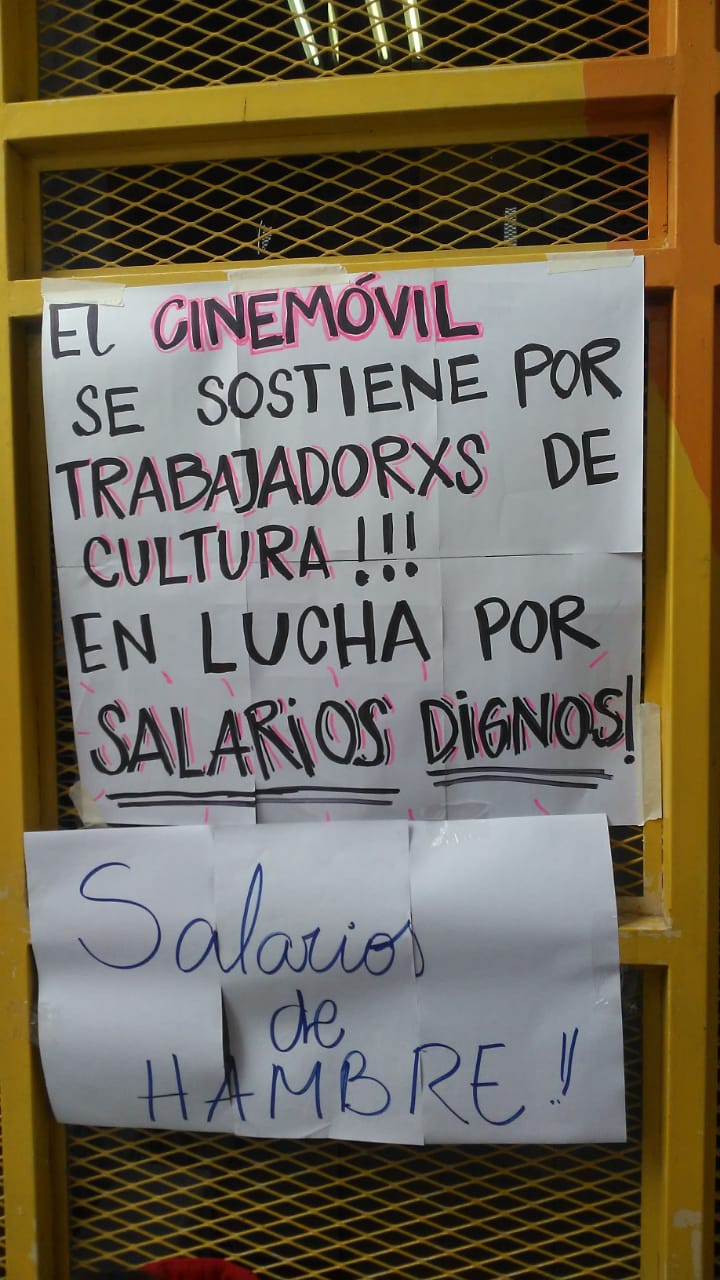 El CINEMÓVIL
SE SOSTIENE POR
TRABAJADORXS DE
CULTURA !!!
EN LUCHA POR
SALARiOS DiGNOS!
Salarios
de
HAMBRE !!